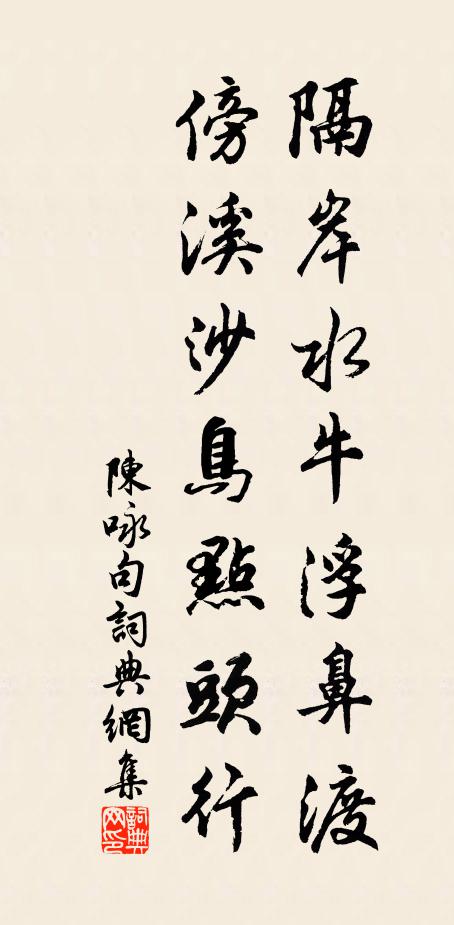 隔岸水牛浮鼻渡
傍溪沙鳥點頭行
陳咏句詞典網集
詞典網印